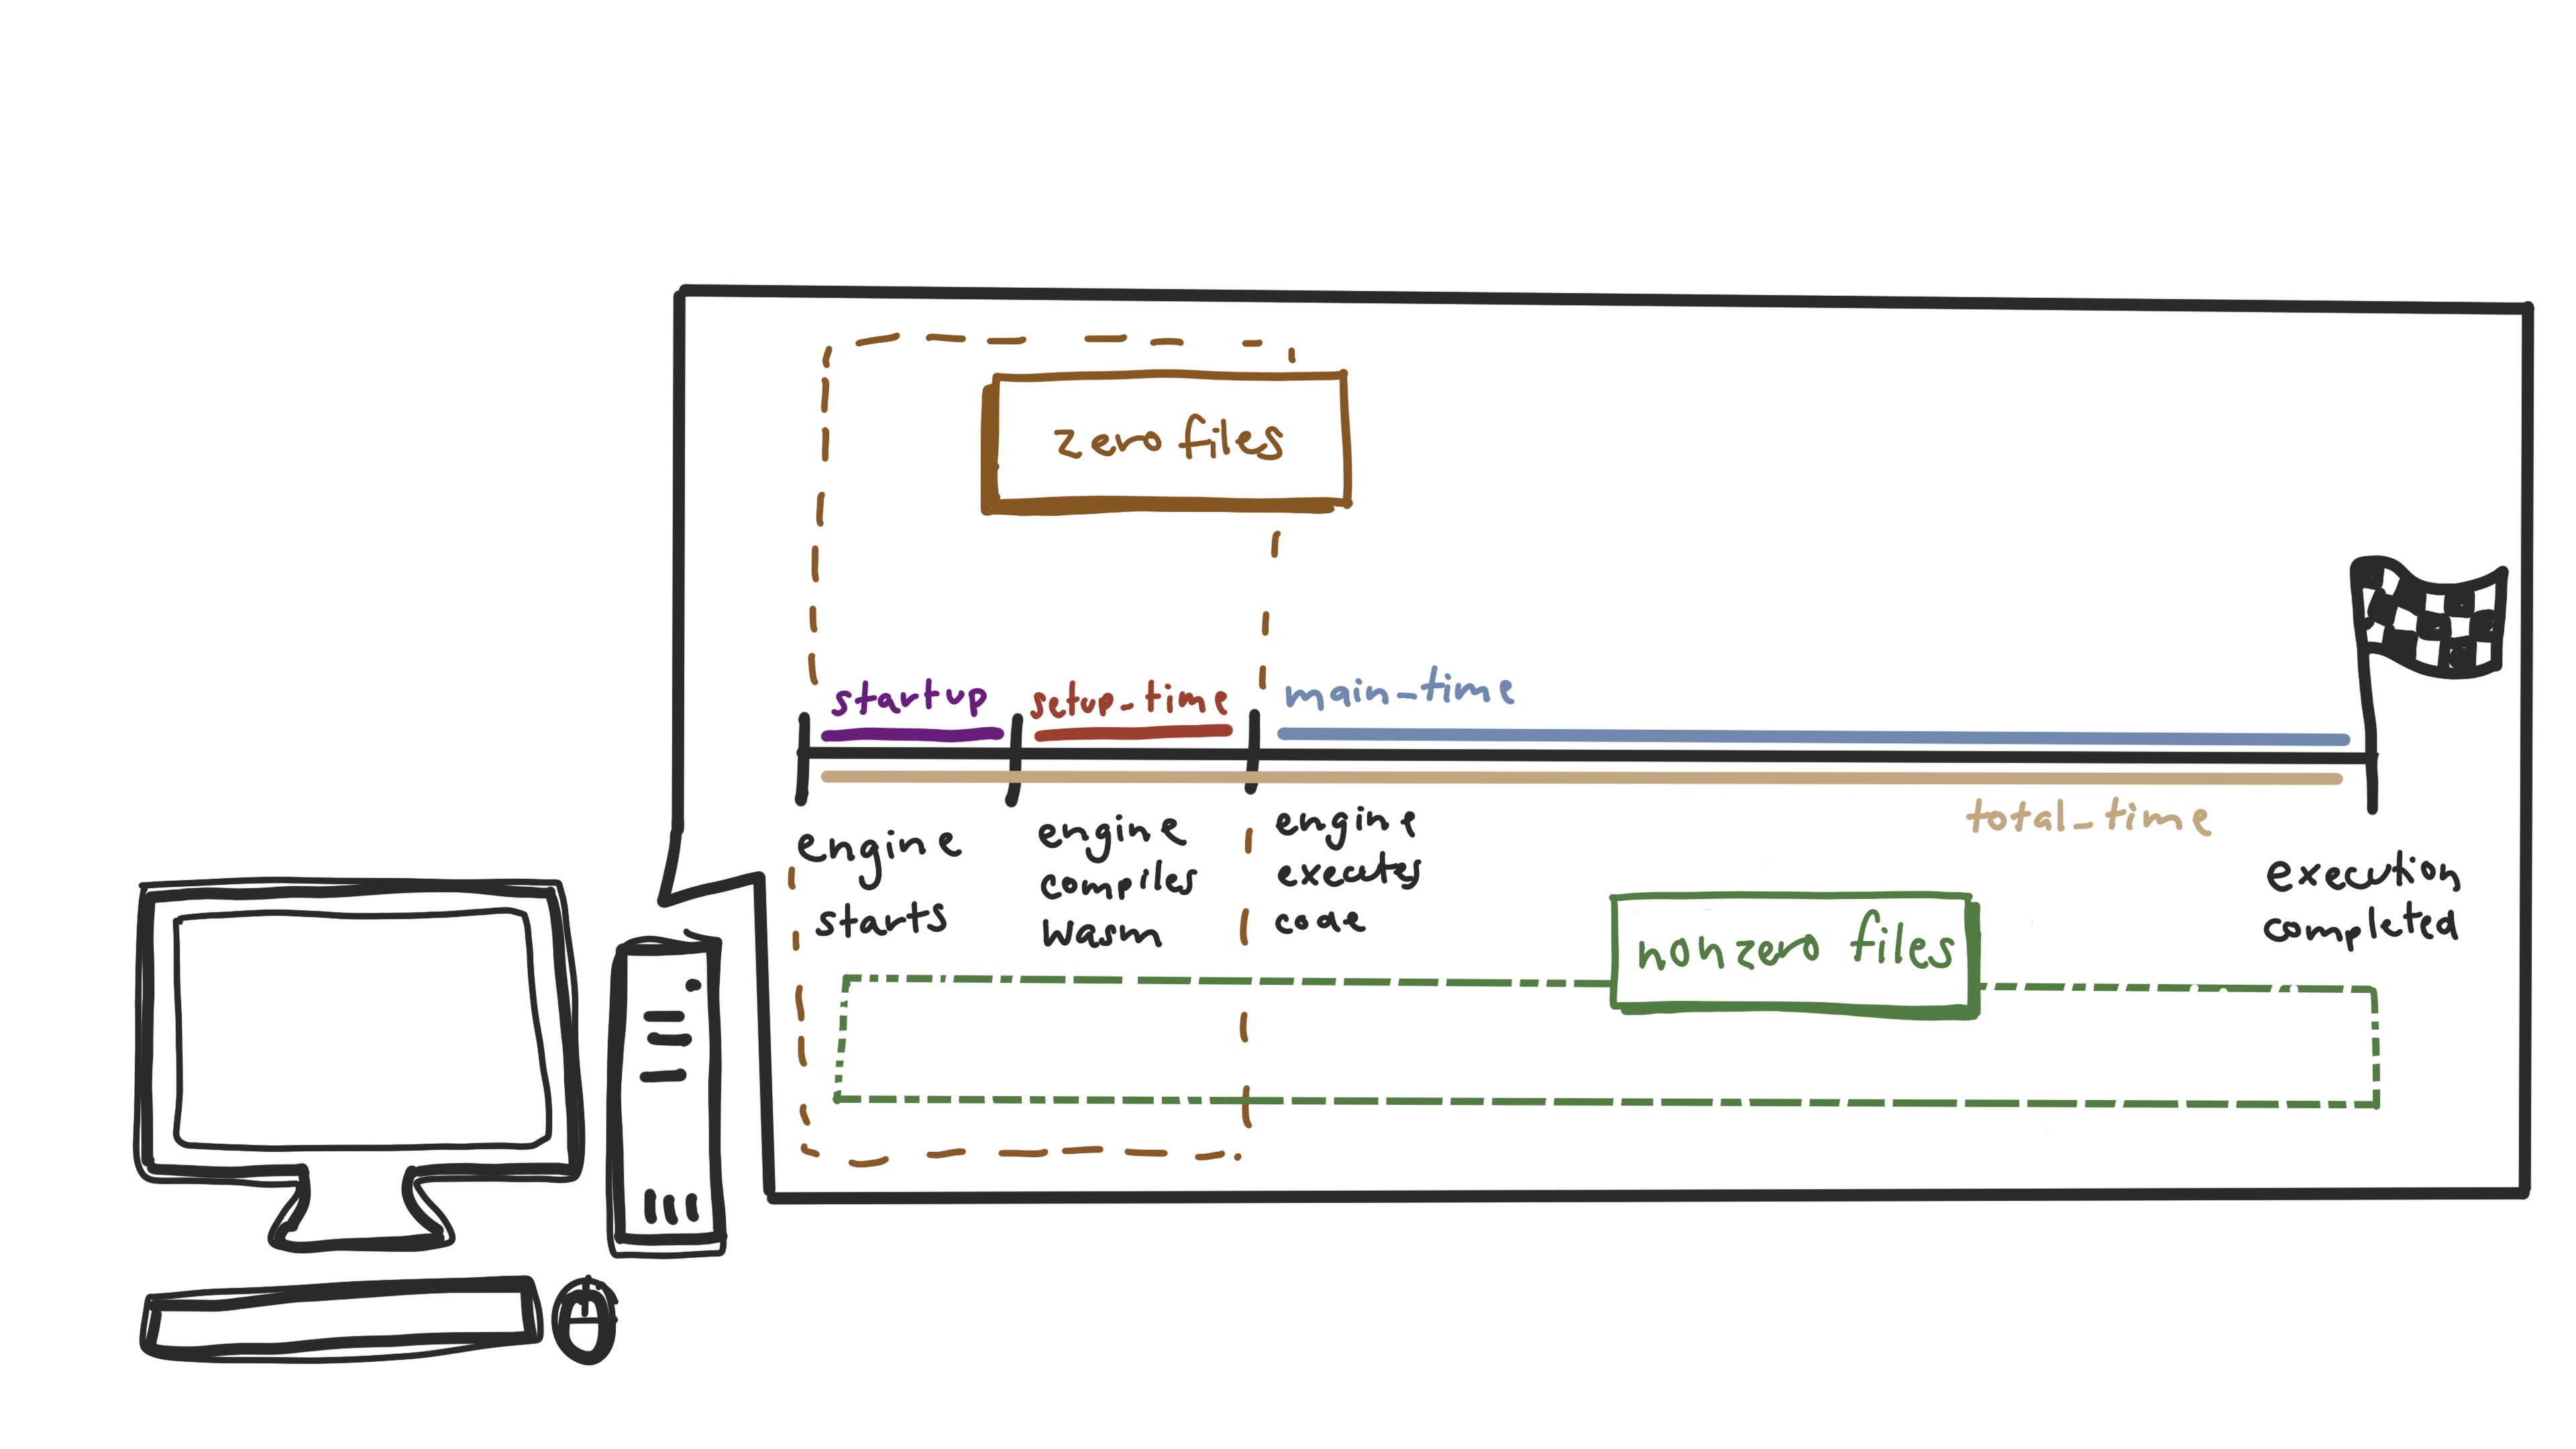 zero files
startup
setup_time
main_time
total_time
engine
starts
engine
compiles
wasm
engine
executes
code
execution
completed
nonzero files